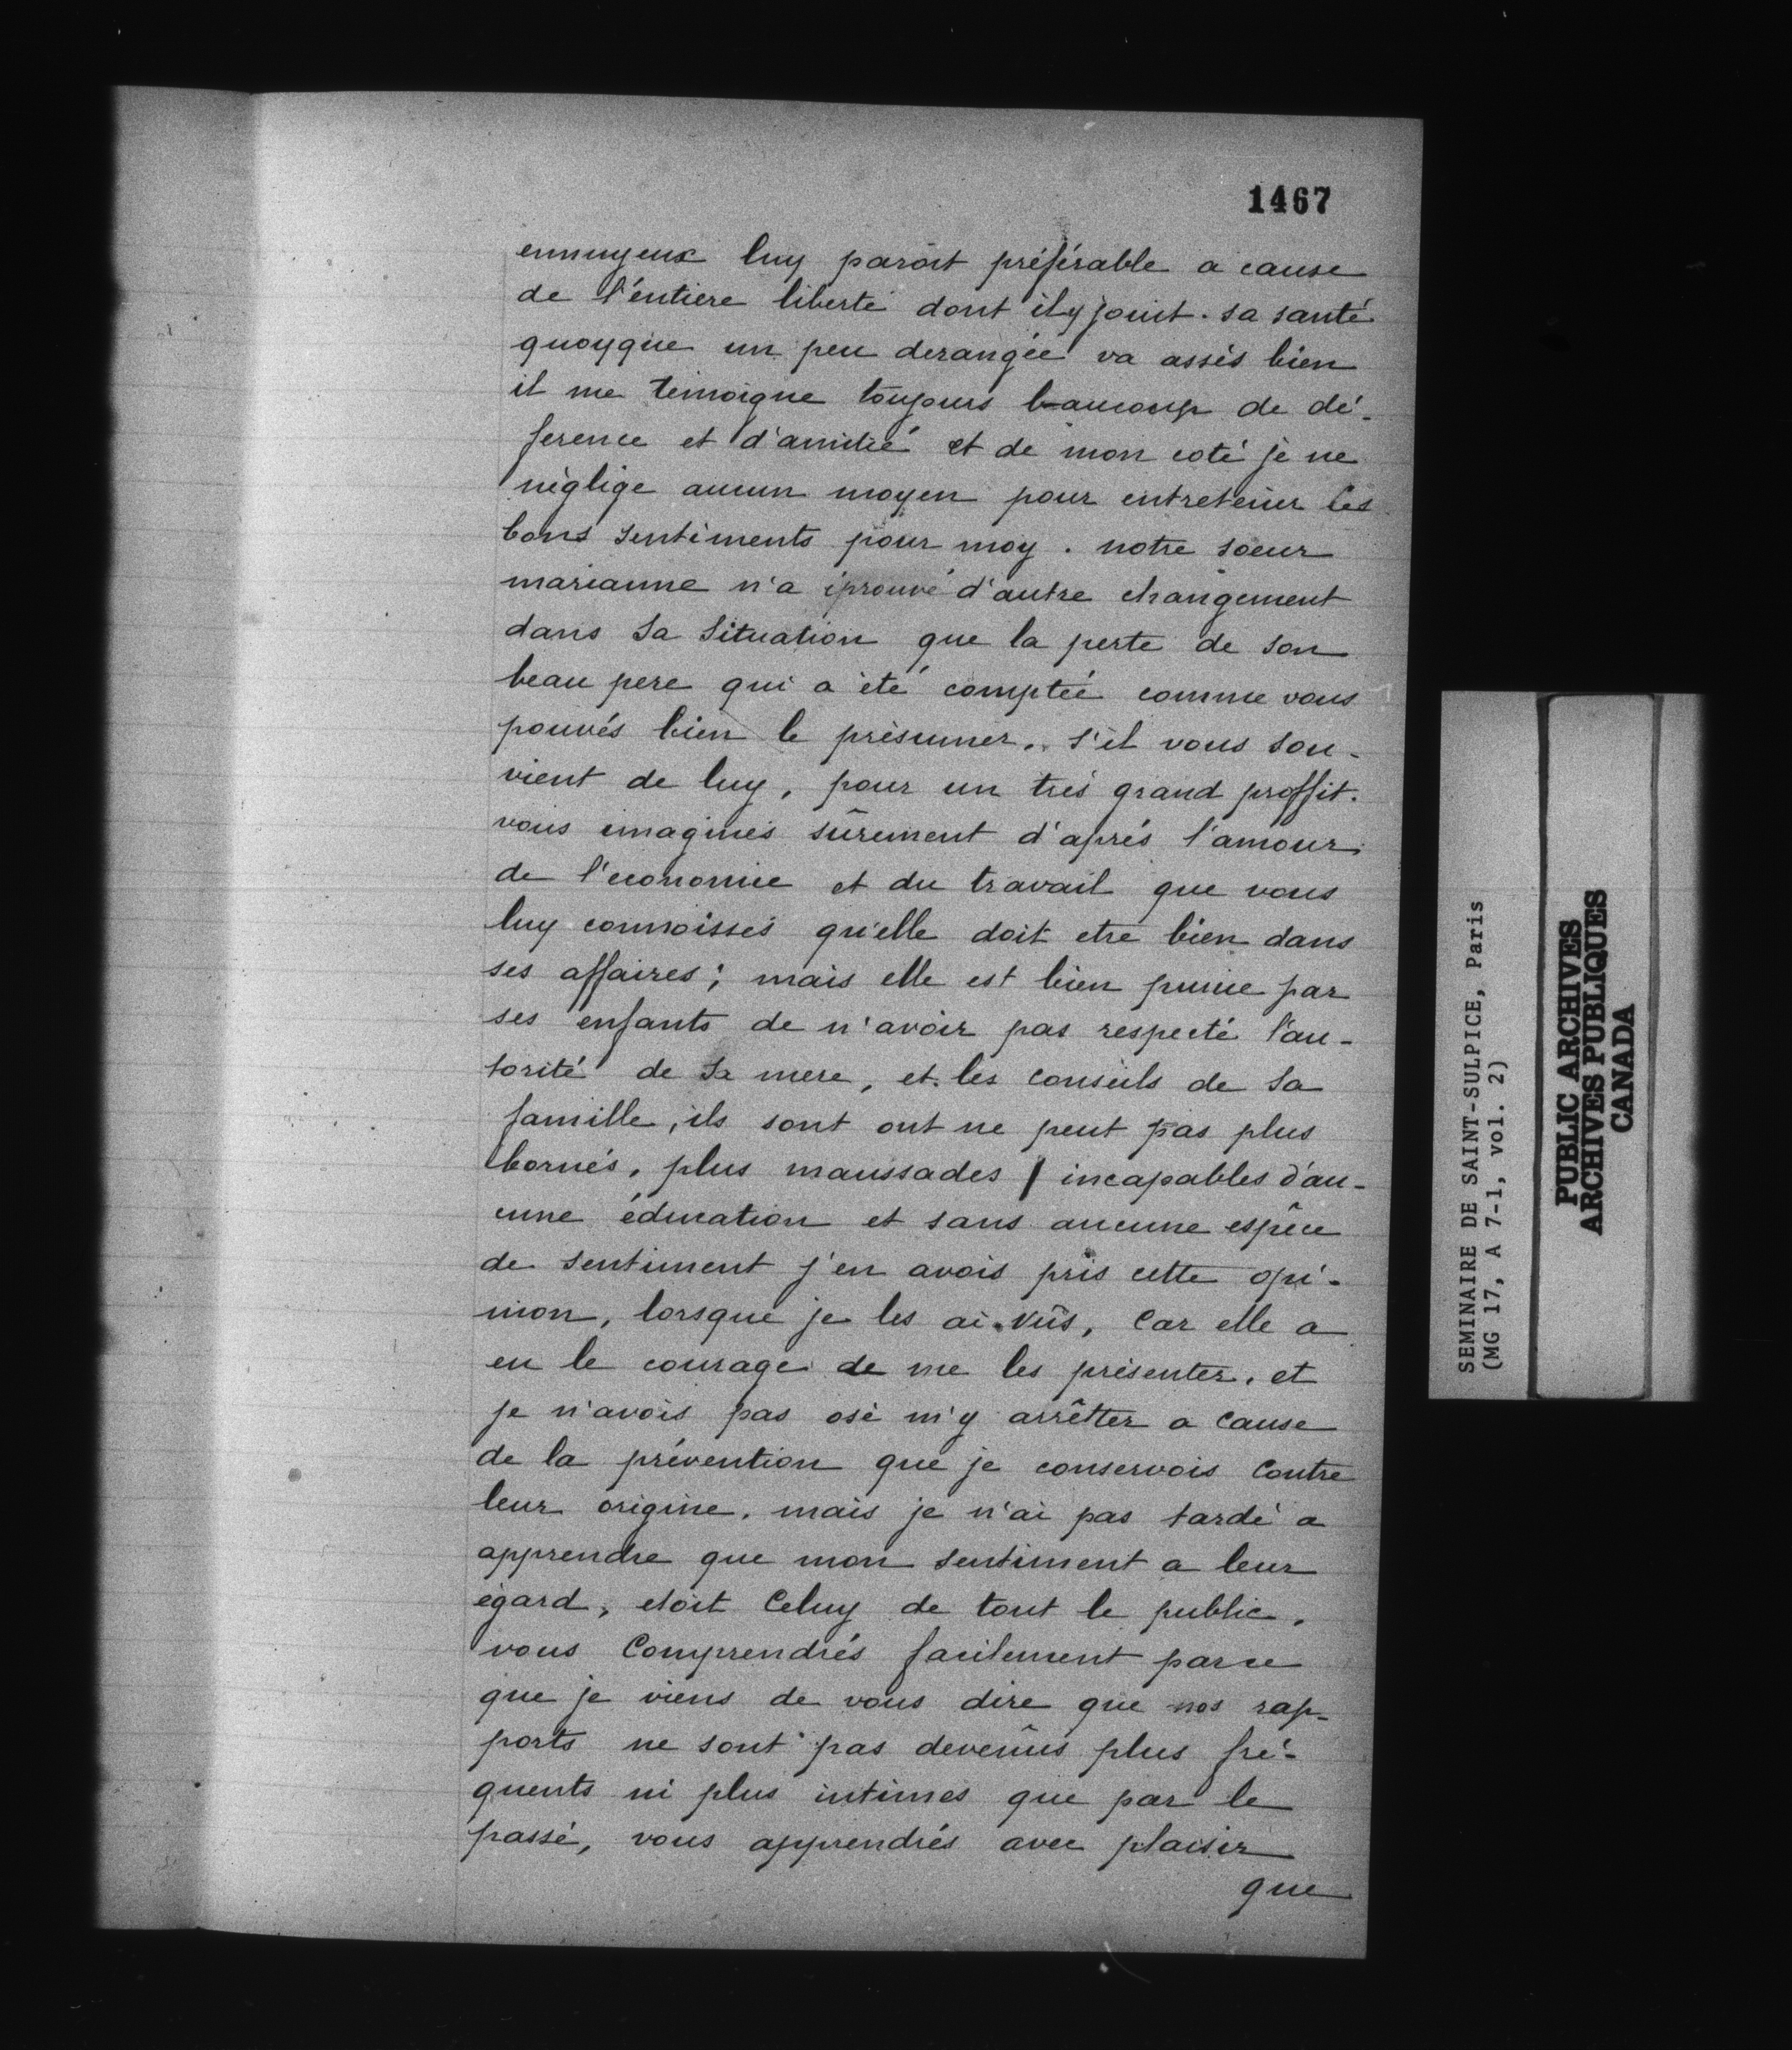 1467
ennuyeux luy paroit préférable a cause
de l'éntiere liberté dont il y jouit. sa santé
quoyque un peu derangée va assés bien
il me témoigne toujours beaucoup de dé-
ference et d'amitié et de mon coté je ne
néglige aucun moyen pour entretenir les
bons sentiments pour moy. notre soeur
marianne n'a éprouvé d'autre changement
dans sa situation que la perte de son
beau pere qui a été comptée comme vous
pouvés bien le présumer, s'il vous sou-
vient de luy, pour un trés grand proffit.
vous imaginés sûrement d'aprés l'amour
de l'économie et du travail que vous
luy connoissés qu'elle doit etre bien dans
ses affaires; mais elle est bien punie par
ses enfants de n'avoir pas respecté l'au-
torité de sa mere, et les conseils de sa
famille, ils sont ont ne peut pas plus
bornés, plus maussades / incapables d'au-
cune éducation et sans aucune espêce
de sentiment j'en avois pris cette opi-
nion, lorsque je les ai vûs, car elle a
eu le courage de me les présenter, et
je n'avois pas osé m'y arrêtter a cause
de la prévention que je conservois contre
leur origine, mais je n'ai pas tardé a
apprendre que mon sentiment a leur
égard, etoit celuy de tout le public.
vous comprendrés facilement parce
que je viens de vous dire que nos rap-
ports ne sont pas devenûs plus fré-
quents ni plus intimes que par le
passé, vous apprendrés avec plaisir
que
SEMINAIRE DE SAINT-SULPICE, Paris
(MG 17, A 7-1, vol. 2)
PUBLIC ARCHIVES
ARCHIVES PUBLIQUES
CANADA